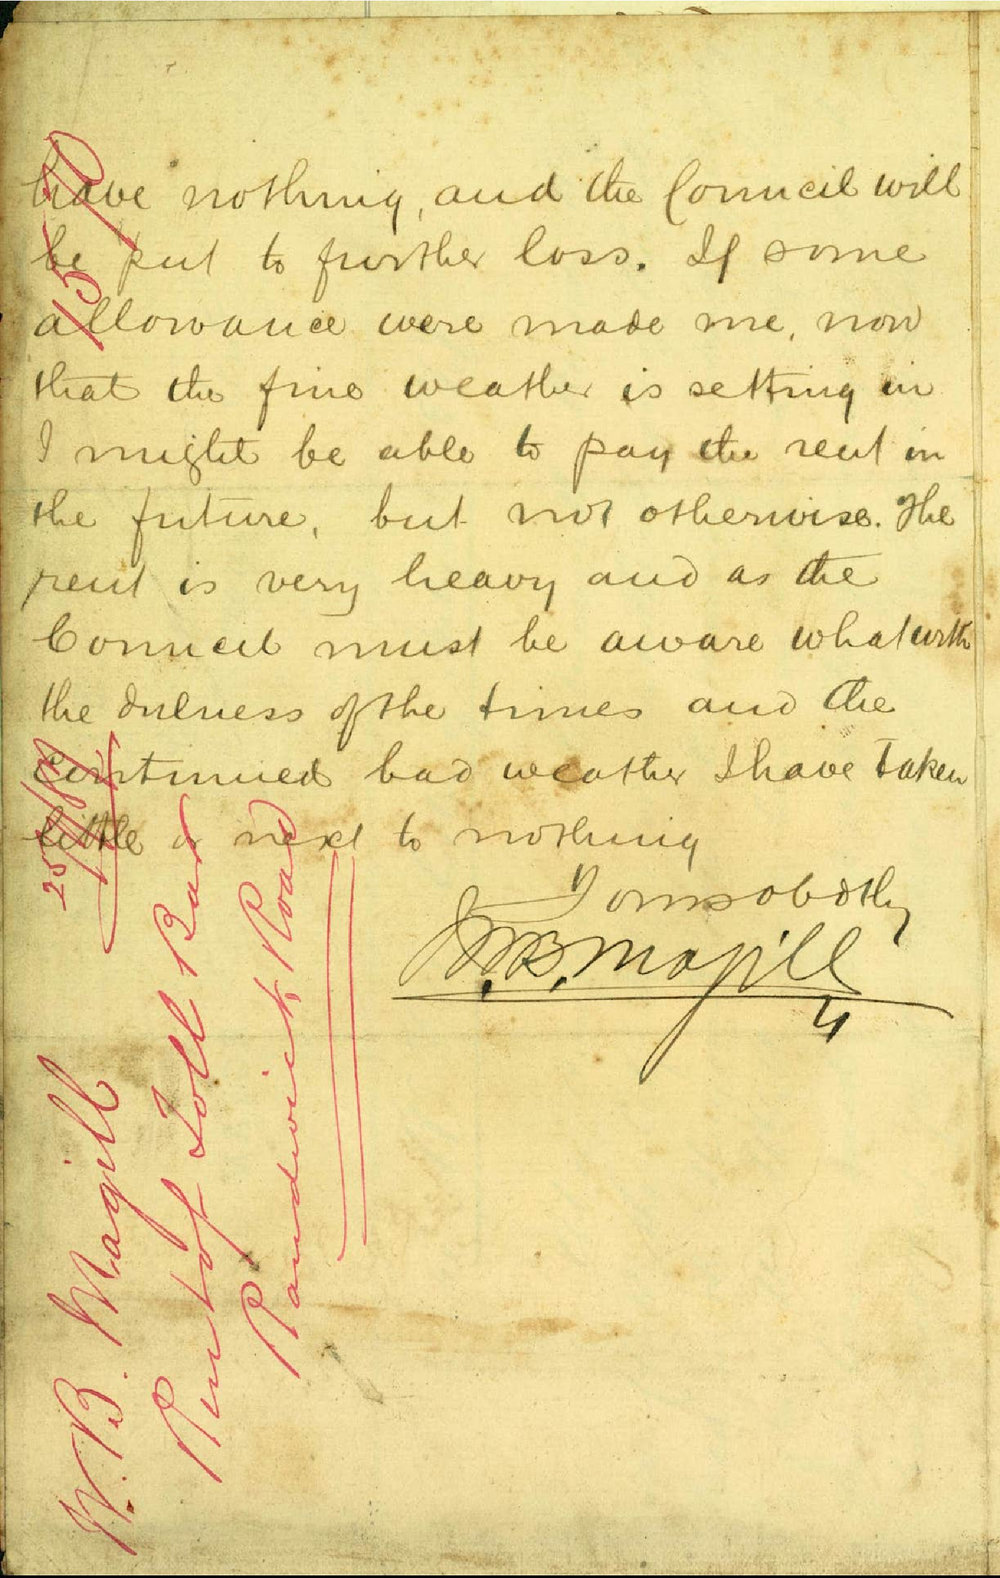 have nothing, and the Council will
be put to further loss. If some
allowance were made me, now
that the fine weather is setting in
I might be able to pay the rent in
the future, but not otherwise. The
rent is very heavy and as the
Council must be aware what with
the dulness of the times and the
continued bad weather I have taken
little or next to nothing
Yours obdtly
W.B. Magill
W.B. Magill
Rent of Toll Bar
Randwick Road